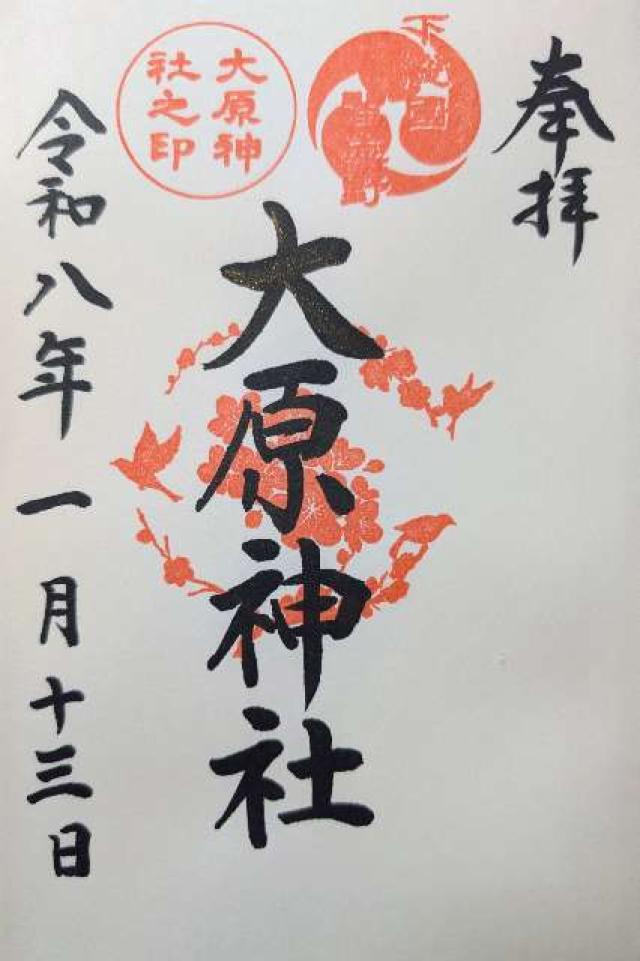 奉拝
下總國
大原神
社之印
大原神社
令和八年一月十三日